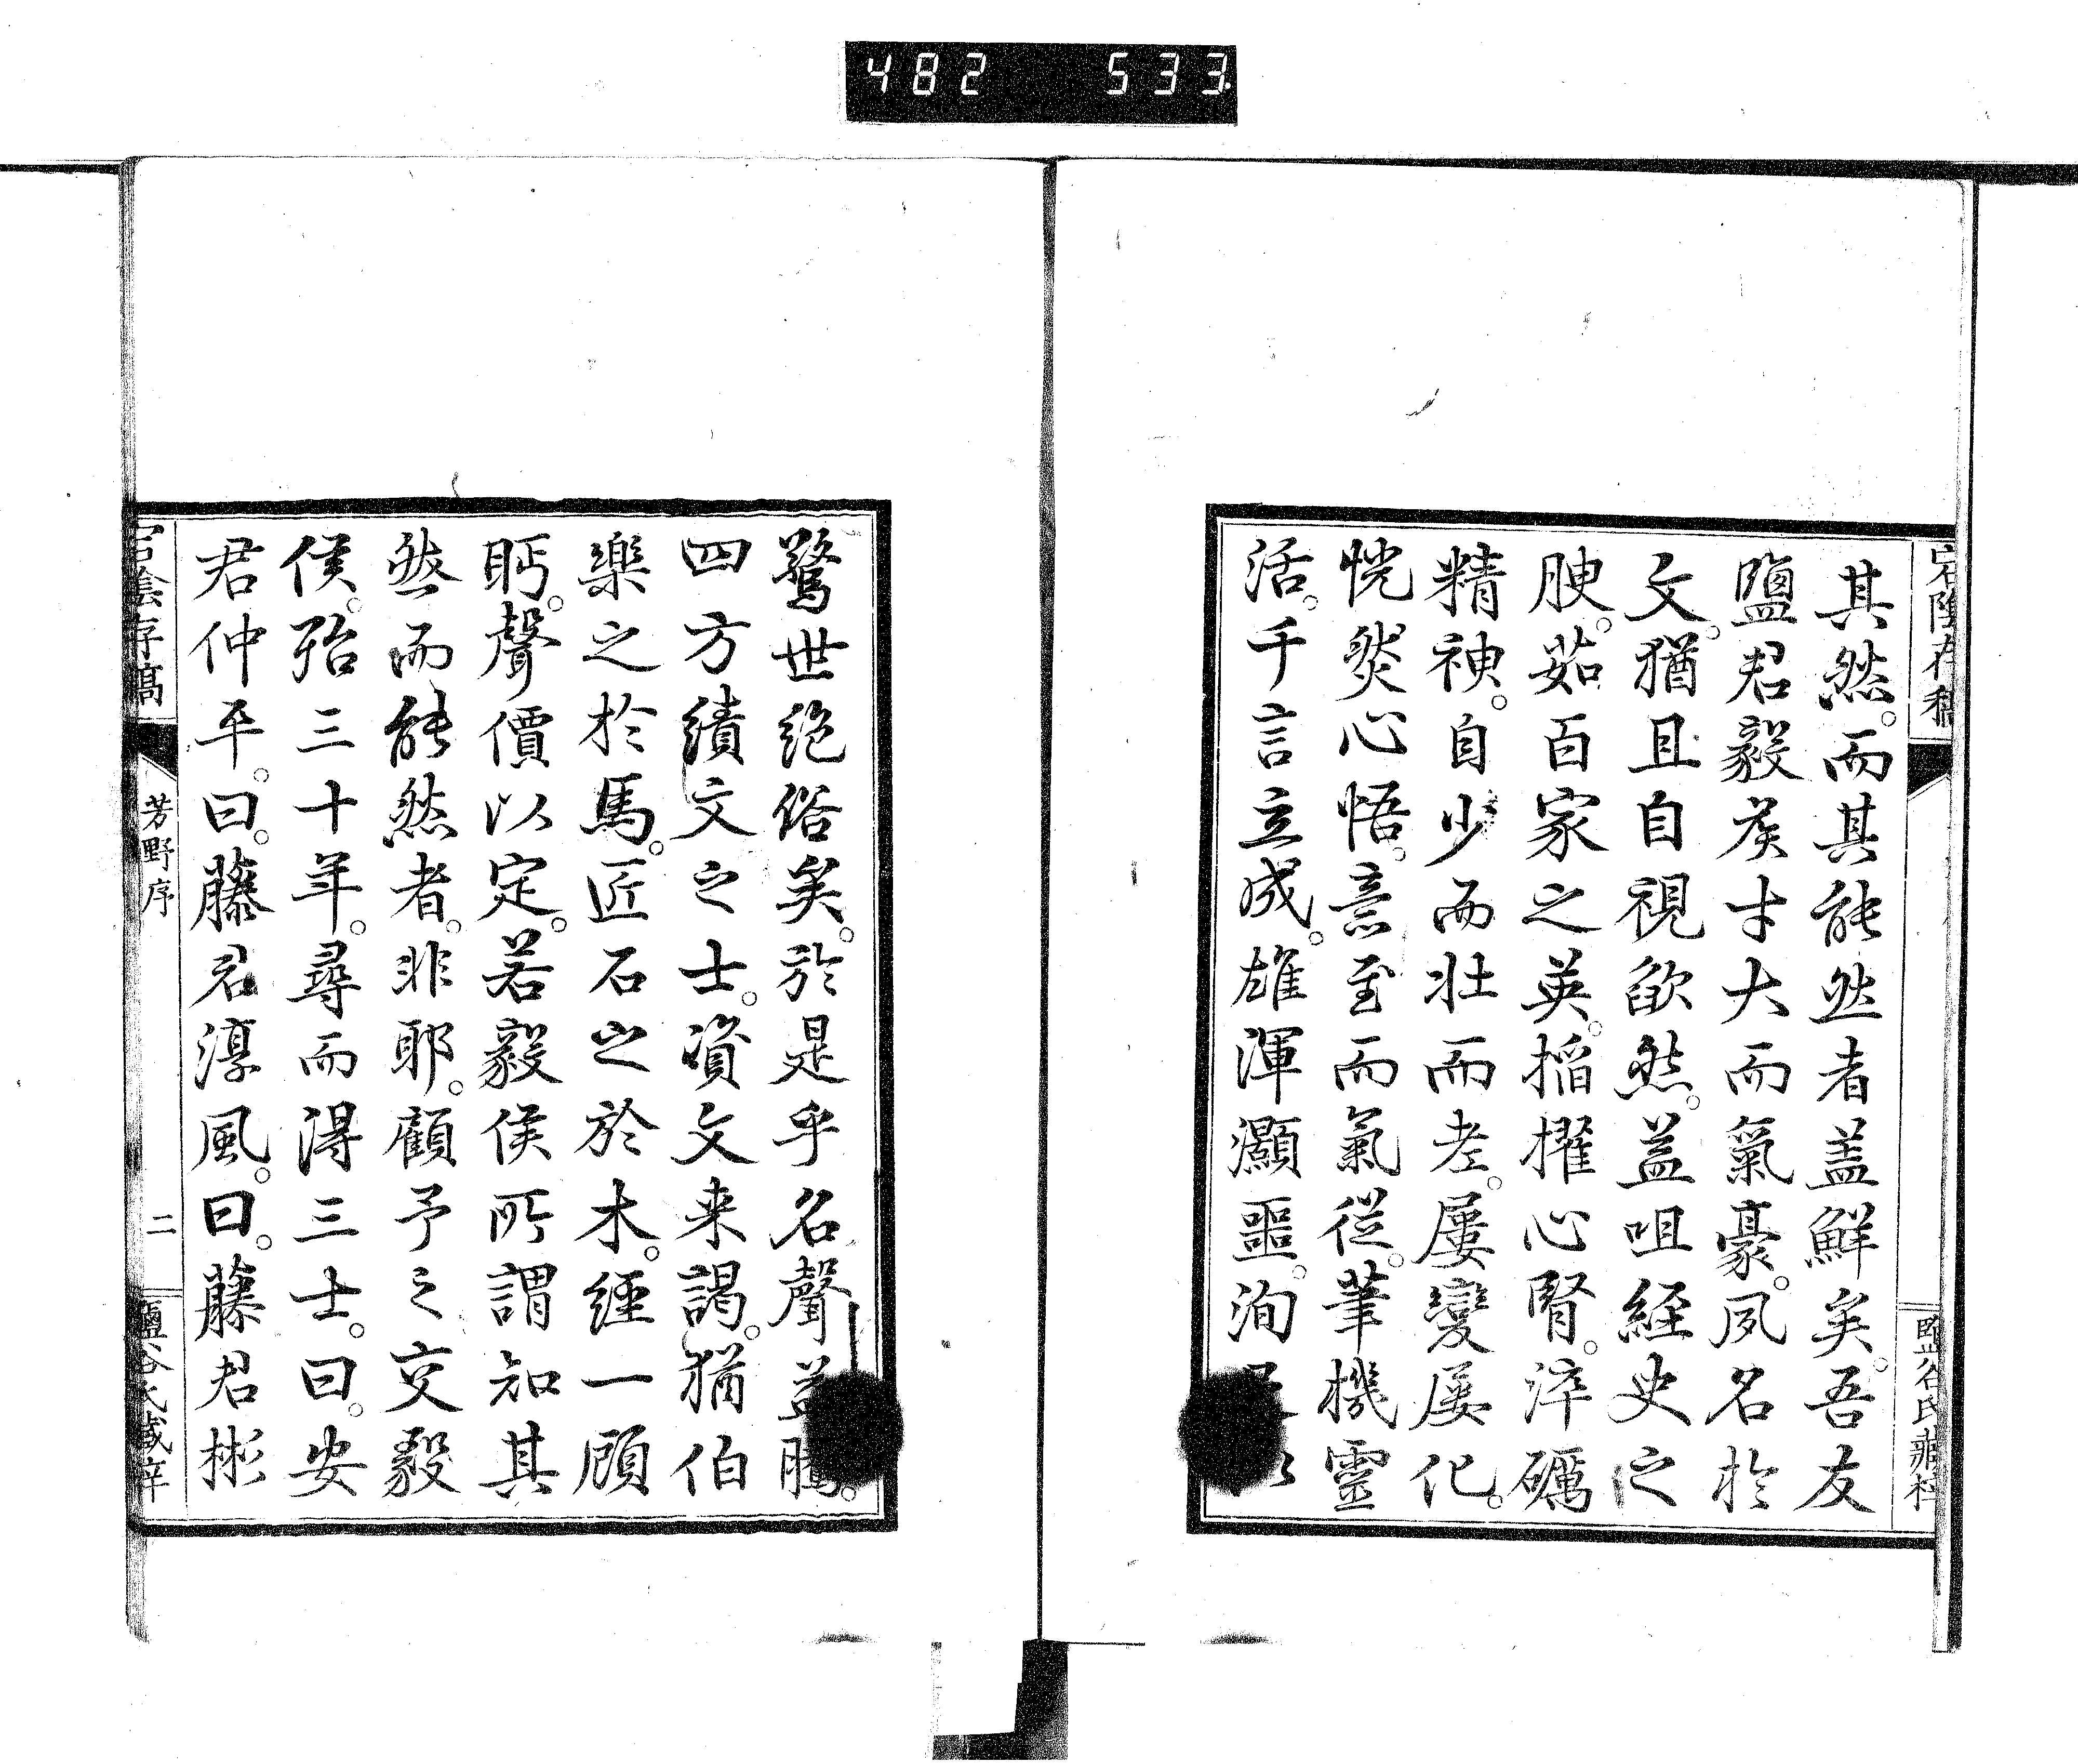 482 533
宕陰存稿
鹽谷氏藏梓
其然。而其能然者蓋鮮矣。吾友
鹽君毅矦才大而氣豪。夙名於
文。猶且自視欿然。蓋咀經史之
腴。茹百家之英。搯擢心腎。淬礪
精神。自少而壯而老。屢變屢化。
恍然心悟。意至而氣從。筆機靈
活。千言立成。雄渾灝噩。洵
驚世絶俗矣。於是乎名聲益騰。
四方績文之士。資文来謁。猶伯
樂之於馬。匠石之於木。經一顧
眄。聲價以定。若毅侯所謂知其
然而能然者。非耶。顧予之交毅
侯。殆三十年。尋而得三士。曰。安
君仲平。曰。藤君淳風。曰。藤君彬
宕陰存稿
芳野序
二
鹽谷氏藏梓